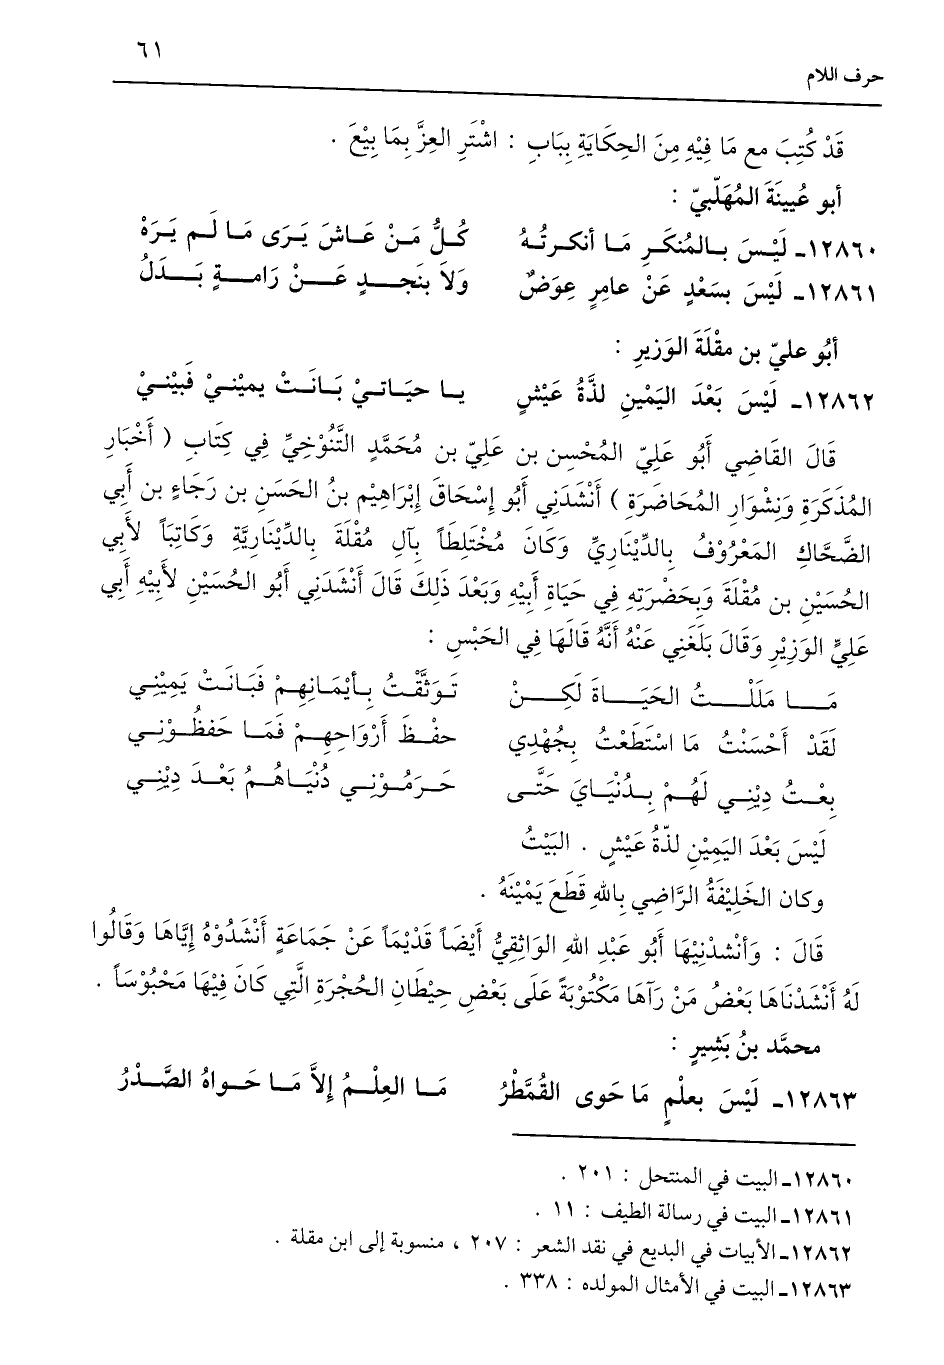 ٦١
حرف اللام
قَدْ كُتِبَ مع مَا فِيْهِ مِنَ الحِكَايَةِ بِبَابِ : اشْتَرِ العِزَّ بِمَا بِيْعَ .
أبو عُيينَةَ المُهَلّبيّ :
١٢٨٦٠ـ لَيْسَ بالمُنكَرِ مَا أنكرتُهُ كُلُّ مَنْ عَاشَ يَرَى مَا لَم يَرَهْ
١٢٨٦١ـ لَيْسَ بسَعْدٍ عَنْ عامِرٍ عِوَضٌ وَلَا بنَجدٍ عَنْ رَامةٍ بَدَلُ
أبُو عليّ بن مقْلَةَ الوَزيرِ :
١٢٨٦٢ـ لَيْسَ بَعْدَ اليَمْينِ لذَّةُ عَيْشٍ يا حيَاتيْ بَانَتْ يميْنيْ فَبيْنيْ
قَالَ القَاضِي أَبُو عَلِيّ المُحْسِن بن عَلِيّ بن مُحَمَّدٍ التَّنُوْخِيِّ فِي كِتَابِ ( أَخْبَارِ
المُذَكَرَةِ وَنِشْوَارِ المُحَاضَرَةِ ) أَنْشَدَنِي أَبُو إِسْحَاقَ إِبْرَاهِيْم بنُ الحَسَنِ بن رَجَاءٍ بن أَبي
الضَّحَّاكِ المَعْرُوْفُ بِالدِّيْنَارِيِّ وَكَانَ مُخْتَلِطَاً بآلِ مُقْلَةَ بِالدِّيْنَارِيَّةِ وَكَاتِبَاً لأَبي
الحُسَيْنِ بن مُقْلَةَ وَبِحَضْرَتِهِ فِي حَيَاةِ أَبِيْهِ وَبَعْدَ ذَلِكَ قَالَ أَنْشَدَنِي أَبُو الحُسَيْنِ لأَبِيْهِ أَبِي
عَلِيٍّ الوَزِيْرِ وَقَالَ بَلَغَنِي عَنْهُ أَنَّهُ قَالَهَا فِي الحَبْسِ :
مَا مَلَلْتُ الحَيَاةَ لَكِنْ تَوَثَّقْتُ بِأَيْمَانِهِمْ فَبَانَتْ يَمِيْنِي
لَقَدْ أَحْسَنْتُ مَا اسْتَطَعْتُ بِجُهْدِي حفْظَ أَرْوَاحِهِمْ فَمَا حَفظُوْنِي
بِعْتُ دِيْنِي لَهُمْ بِدُنْيَايَ حَتَّى حَرَمُوْنِي دُنْيَاهُمُ بَعْدَ دِيْنِي
لَيْسَ بَعْدَ اليَمِيْنِ لذَّةُ عَيْشٍ . البَيْتُ
وكان الخَلِيْفَةُ الرَّاضِي بِاللهِ قَطَعَ يَمْيْنَهُ .
قَالَ : وَأَنْشدْنِيْهَا أَبُو عَبْدِ اللهِ الوَاثِقِيُّ أَيْضَاً قَدِيْمَاً عَنْ جَمَاعَةٍ أَنْشَدُوْهُ إِيَّاهَا وَقَالُوا
لَهُ أَنْشَدْنَاهَا بَعْضُ مَنْ رَآهَا مَكْتُوْبَةً عَلَى بَعْضِ حِيْطَانِ الحُجْرَةِ الَّتِي كَانَ فِيْهَا مَحْبُوْسَاً .
محمَّد بنُ بَشِيرٍ :
١٢٨٦٣ـ لَيْسَ بعلْمٍ مَا حَوى القُمَّطْرُ مَا العِلْمُ إلاَّ مَا حَواهُ الصَّدْرُ
١٢٨٦٠ـ البيت في المنتحل : ٢٠١ .
١٢٨٦١ـ البيت في رسالة الطيف : ١١ .
١٢٨٦٢ـ الأبيات في البديع في نقد الشعر : ٢٠٧ ، منسوبة إلى ابن مقلة .
١٢٨٦٣ـ البيت في الأمثال المولده : ٣٣٨ .